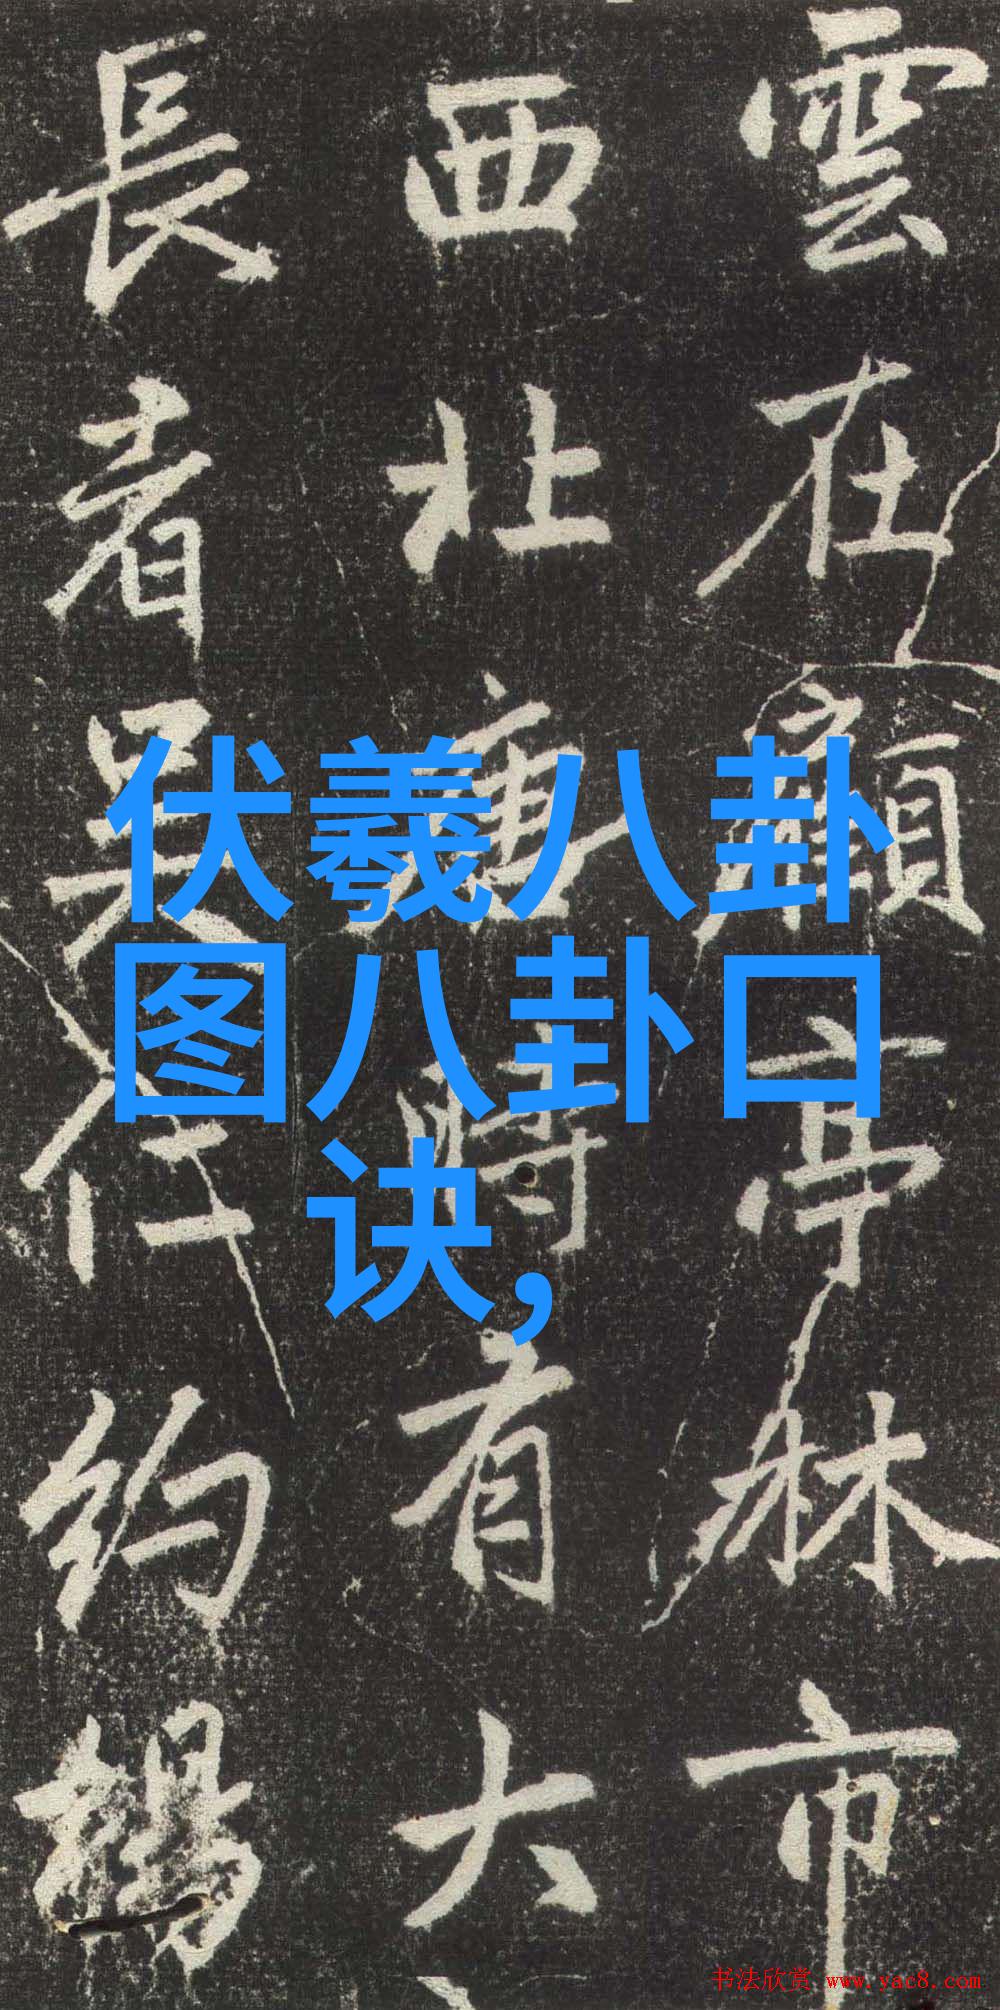 伏羲八卦
图八卦口
诀,
雲在顧亭林市
西北唐時有大
長者吴仕約
书法欣赏 www.yac8.com